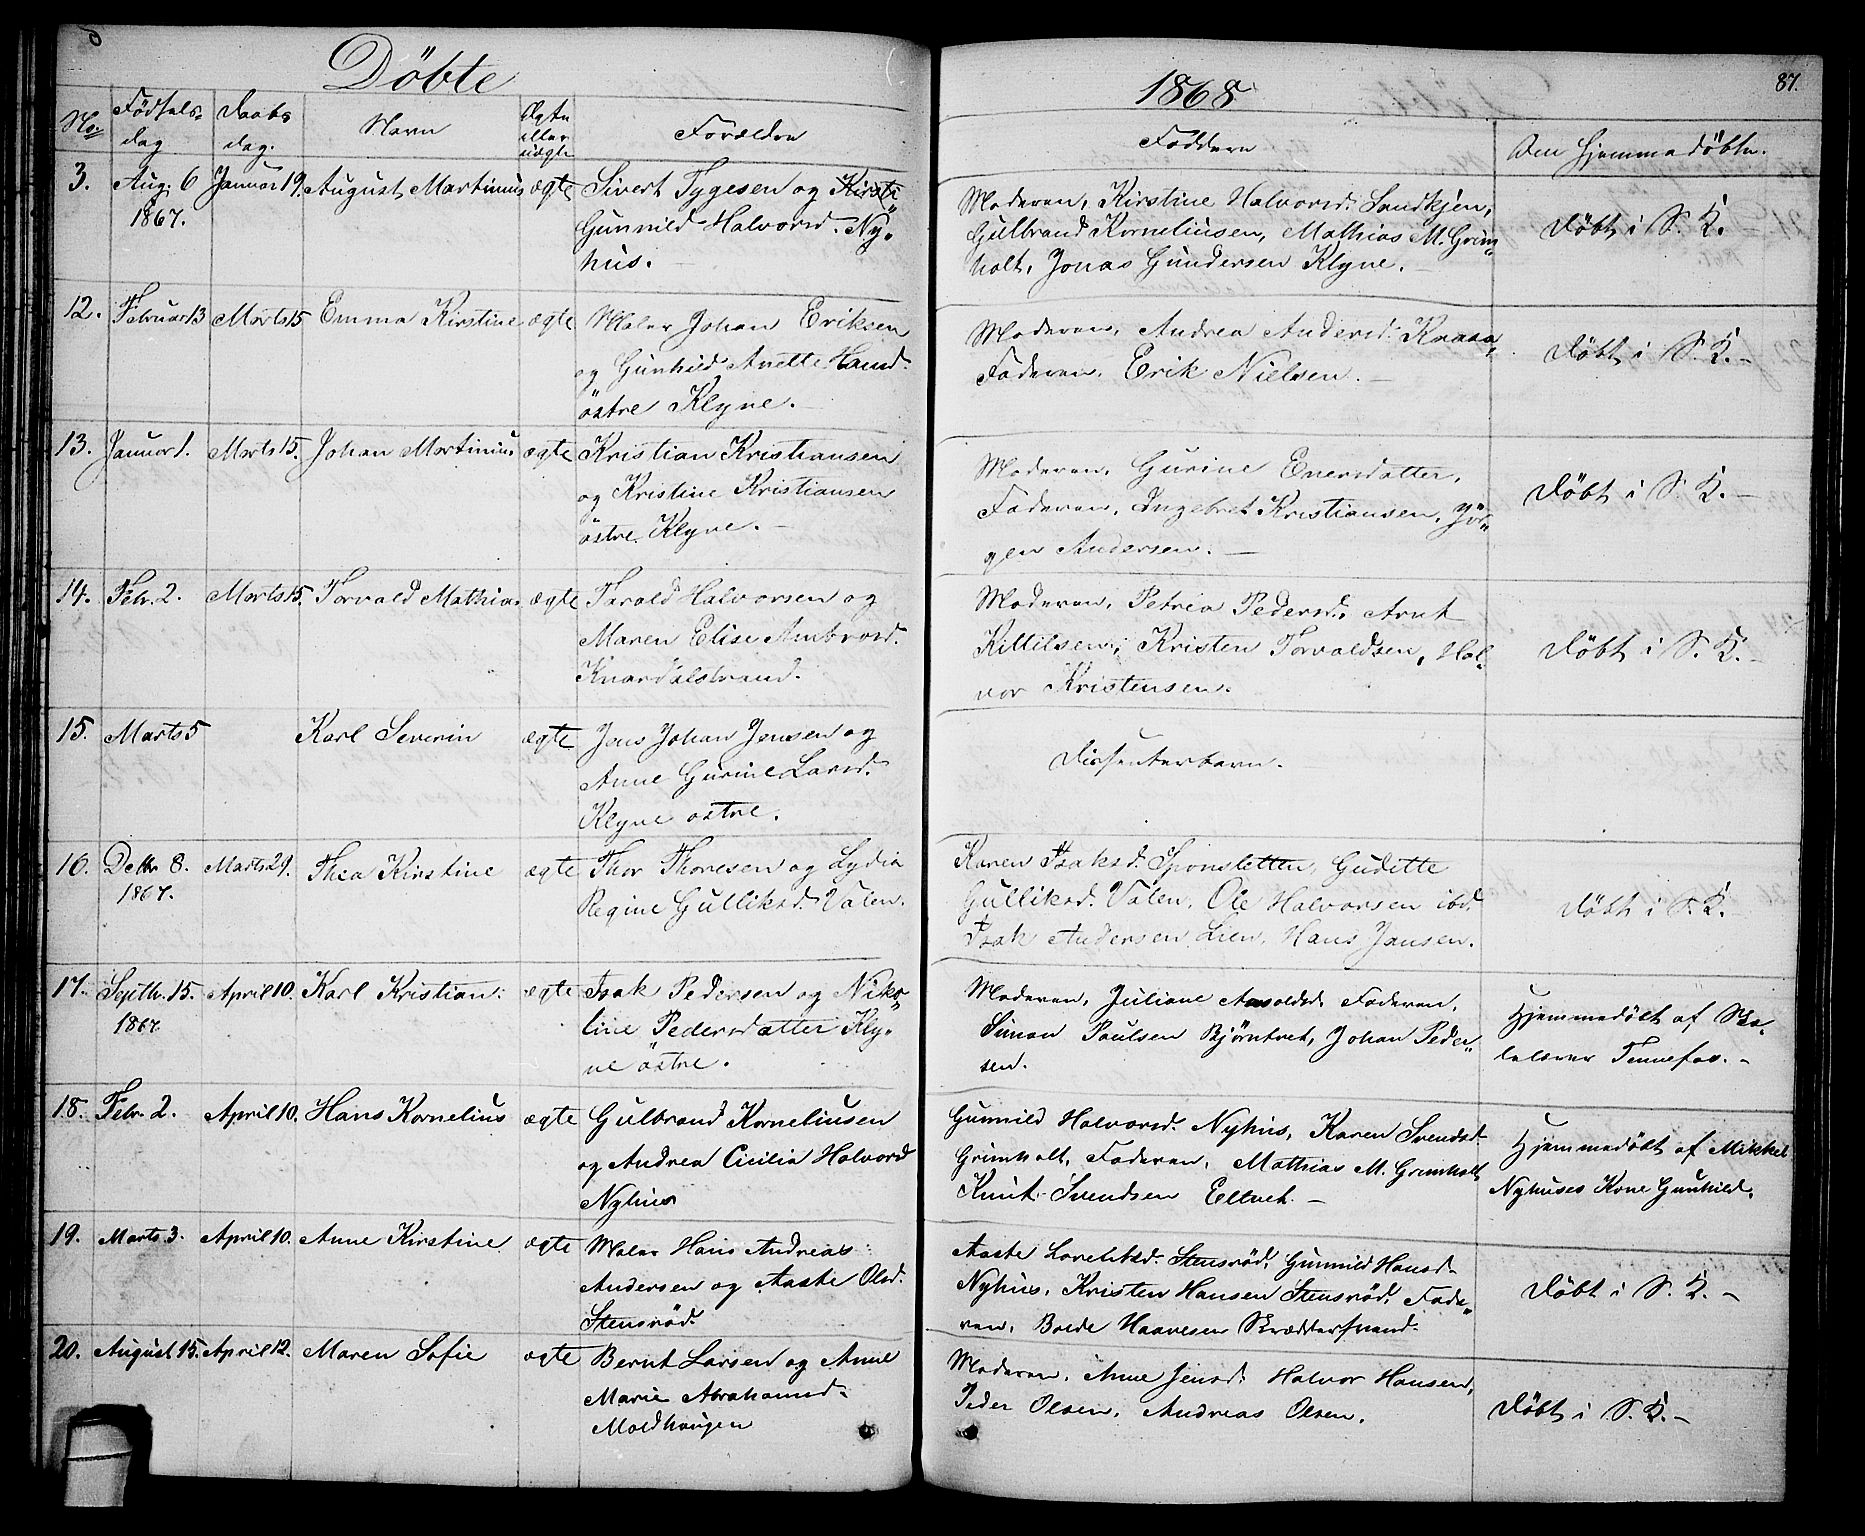 Döbte
1868
87.
No
Födsels-
dag
Daabs
dag.
Navn
Ægte
eller
uægte
Forældre
Faddere
Om hjemmedöbte.
3. Aug: 6 Januar 19. August Martinus ægte Sivert Tygesen og Kirsti
1867. Gunnild Halvorsd. Ny-
hus.
Moderen, Kirstine Halvorsd. Sandkjen,
Gulbrand Korneliusen, Mathias M. Grim-
holt, Jonas Gundersen Klyve.
Döbt i S. K.
12. Februar 13 Marts 15 Emma Kirstine ægte Maler Johan Eriksen
og Gunhild Anette Hansd.
östre Klyve. -
Moderen, Andrea Andersd. Knasa,
Faderen, Erik Nielsen. -
Döbt i S. K. -
13. Januar 1. Marts 15. Johan Martinius ægte Kristian Kristiansen
og Kristine Kristiansen
östre Klyve. -
Moderen, Gurine Enersdatter,
Faderen, Ingebret Kristiansen, Jör-
gen Andersen. -
Döbt i S. K. -
14. Feb. 2. Marts 15. Torvald Mathias ægte Tarald Halvorsen og
Maren Elise Ambrosd.
Knardalstrand.
Moderen, Petrea Pedersd., Arnt
Kittilsen, Kristen Torvaldsen, Hal-
vor Kristensen.
Döbt i S. K. -
15. Marts 5 Karl Severin ægte Jens Johan Jensen og
Anne Gurine Larsd.
Klyve östre.
Dissenterbarn.
16. Decbr 8. Marts 29. Thea Kirstine ægte Thor Thoresen og Lydia
1867. Regine Gulliksd. Valen.
Karen Isaksd. Sponsletten, Guditte
Gulliksd. Valen, Ole Halvorsen ibd.
Isak Andersen Lien, Hans Jansen.
Döbt i S. K.
17. Septb. 15. April 10. Karl Kristian ægte Isak Pedersen og Niko-
1867 line Pedersdatter Kly-
ve östre.
Moderen, Juliane Arnoldsd. Faderen,
Simon Paulsen Bjørntvet, Johan Peder-
sen.
Hjemmedöbt af Sko-
lelærer Tennefos. -
18. Feb. 2. April 10. Hans Kornelius ægte Gulbrand Korneliusen
og Andrea Cicilia Halvorsd
Nyhus
Gunnild Halvorsd. Nyhus, Karen Svendsd.
Grimholt, Faderen, Mathias M. Grimholt
Knut Svendsen Eltvet. -
Hjemmedöbt af Mikkel
Nyhuses Kone Gunhild.
19. Marts 3. April 10. Anne Kirstine ægte Maler Hans Andreas
Andersen og Aaste Olsd.
Stensröd.
Aaste Lorentsd. Stensröd, Gunnild Hansd.
Nyhus, Kristen Hansen Stensröd, Fade-
ren, Boede Haavesen Skrædderstrand.
Döbt i S. K. -
20. August 15. April 12. Maren Sofie ægte Bernt Larsen og Anne
Marie Abrahamsd.
Moldhaugen
Moderen, Anne Jensd. Halvor Hansen,
Peder Olsen, Andreas Olsen.
Döbt i S. K. -